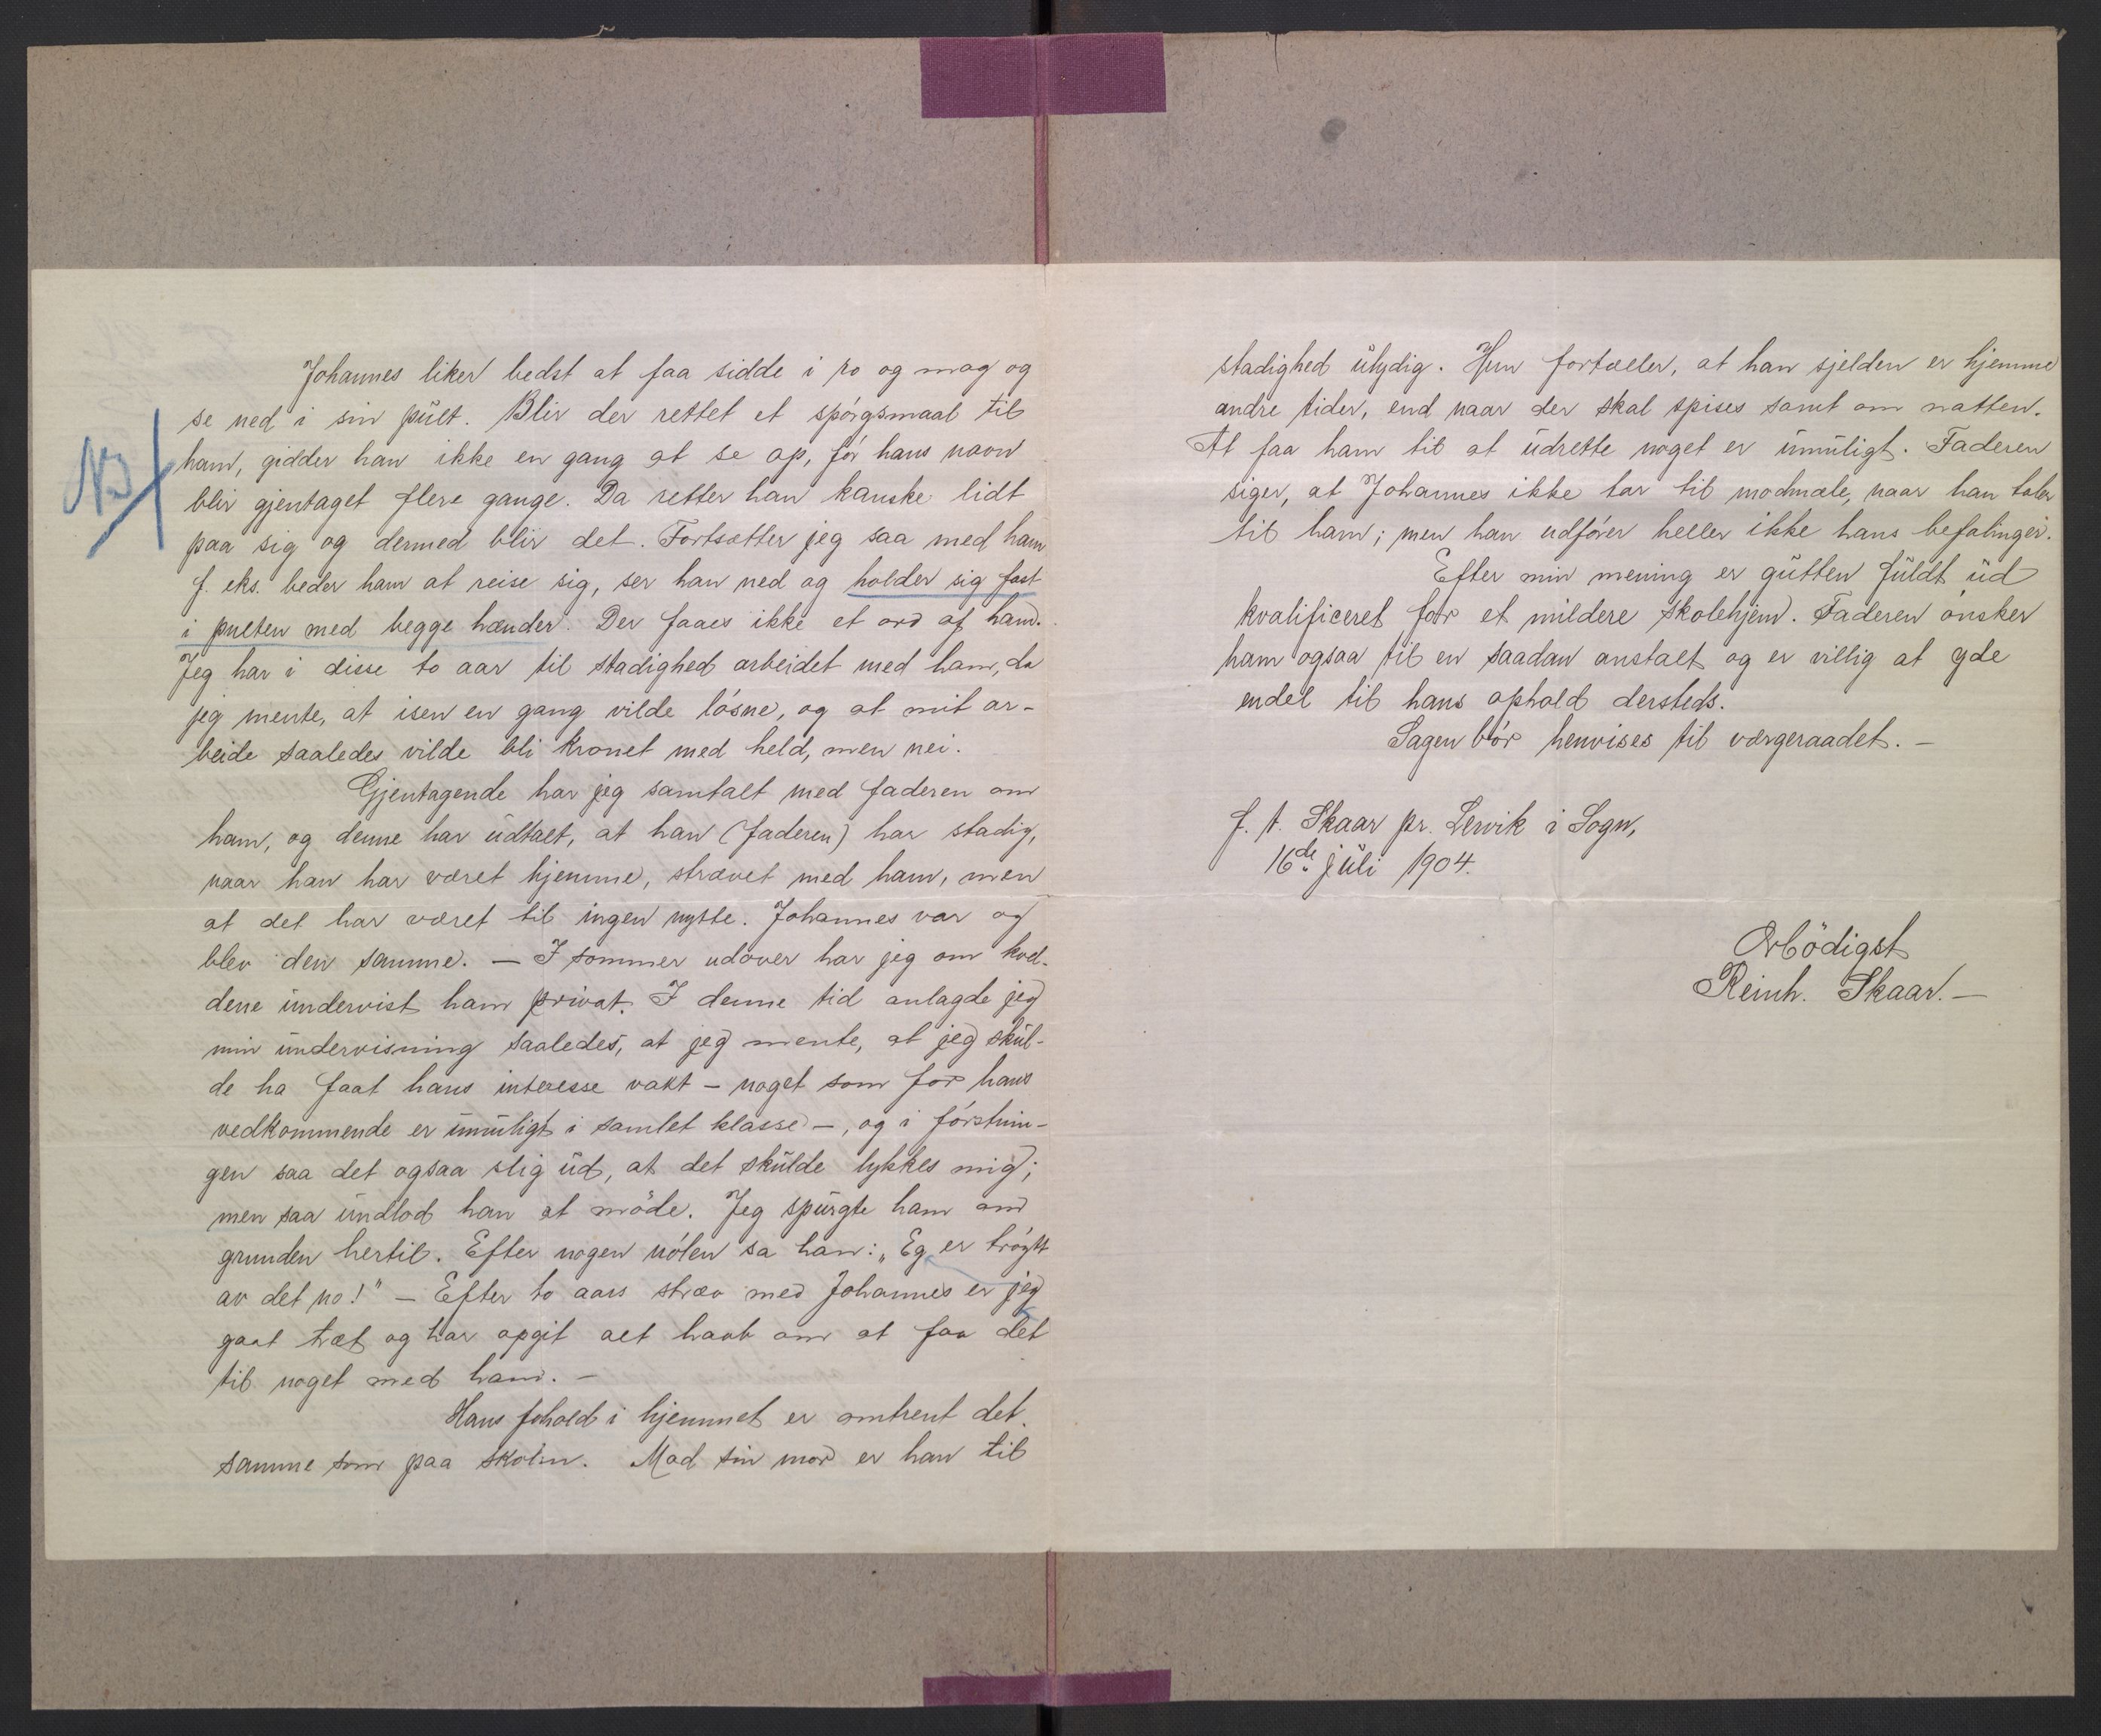 Johannes liker bedst at faa sidde i ro og mag og
se ned i sin pult. Blir der rettet et spørgsmaal til
NB
ham, gidder han ikke en gang at se op, før hans navn
blir gjentaget flere gange. Da retter han kanske lidt
paa sig og dermed blir det. Fortsætter jeg saa med ham
f. eks. beder ham at reise sig, ser han ned og holder sig fast
i pulten med begge hænder. Der faaes ikke et ord af ham.
Jeg har i disse to aar til stadighed arbeidet med ham, da
jeg mente, at isen en gang vilde løsne, og at mit ar-
beide saaledes vilde bli kronet med held, men nei.
Gjentagende har jeg samtalt med faderen om
ham, og denne har udtalt, at han (faderen) har stadig,
naar han har været hjemme, strævet med ham, men
at det har været til ingen nytte. Johannes var og
blev den samme. — I sommer udover har jeg om kvel-
dene undervist ham privat. I denne tid anlagde jeg
min undervisning saaledes, at jeg mente, at jeg skul-
de ha faat hans interesse vakt – noget som for hans
vedkommende er umuligt i samlet klasse –, og i førstnin-
gen saa det ogsaa slig ud, at det skulde lykkes mig;
men saa undlod han at møde. Jeg spurgte ham om
grunden hertil. Efter nogen nølen sa han: „Eg er trøytt
av det no!" – Efter to aars stræv med Johannes er jeg
gaat træt og har opgit alt haab om at faa det
til noget med ham. –
Hans fohold i hjemmet er omtrent det
samme som paa skolen. Mod sin mor er han til
stadighed ulydig. Hun fortæller, at han sjelden er hjemme
andre tider, end naar der skal spises samt om natten.
At faa ham til at udrette noget er umuligt. Faderen
siger, at Johannes ikke tar til modmæle, naar han taler
til ham; men han udfører heller ikke hans befalinger.
Efter min mening er gutten fuldt ud
kvalificeret for et mildere skolehjem. Faderen ønsker
ham ogsaa til en saadan anstalt og er villig at yde
endel til hans ophold dersteds.
Sagen bør henvises til værgeraadet. –
f. t. Skaar pr. Lervik i Sogn,
16de juli 1904.
Ærbødigst
Reinh. Skaar. –